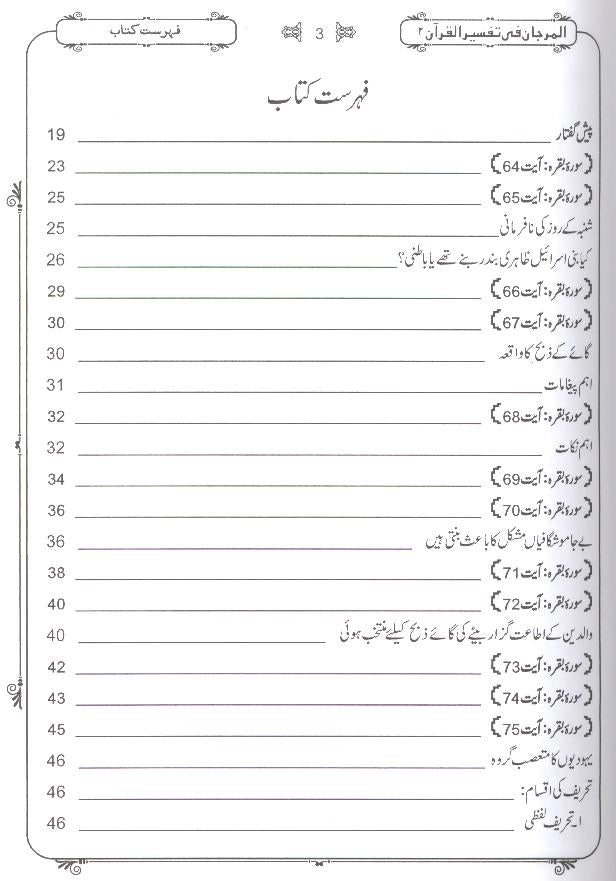 المرجان فی تفسیر القرآن ۲ 3 فہرست کتاب
فہرست کتاب
پیش گفتار 19
﴿سورۂ بقرہ: آیت 64﴾ 23
﴿سورۂ بقرہ: آیت 65﴾ 25
شنبہ کے روز کی نافرمانی 25
کیا بنی اسرائیل ظاہری بندر بنے تھے یا باطنی؟ 26
﴿سورۂ بقرہ: آیت 66﴾ 29
﴿سورۂ بقرہ: آیت 67﴾ 30
گائے کے ذبح کا واقعہ 30
اہم پیغامات 31
﴿سورۂ بقرہ: آیت 68﴾ 32
اہم نکات 32
﴿سورۂ بقرہ: آیت 69﴾ 34
﴿سورۂ بقرہ: آیت 70﴾ 36
بے جا موشگافیاں مشکل کا باعث بنتی ہیں 36
﴿سورۂ بقرہ: آیت 71﴾ 38
﴿سورۂ بقرہ: آیت 72﴾ 40
والدین کے اطاعت گزار بیٹے کی گائے ذبح کیلئے منتخب ہوئی 40
﴿سورۂ بقرہ: آیت 73﴾ 42
﴿سورۂ بقرہ: آیت 74﴾ 43
﴿سورۂ بقرہ: آیت 75﴾ 45
یہودیوں کا متعصب گروہ 46
تحریف کی اقسام: 46
۱۔ تحریف لفظی 46